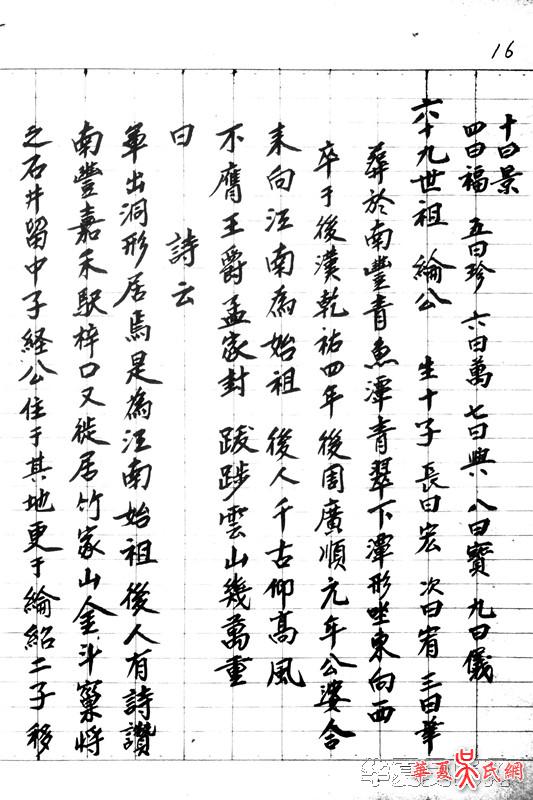 16
之石井留中子経公住于其地更于綸紹二子移
南豐嘉禾駅梓口又徙居竹家山金斗窠將
軍出洞形居焉是為江南始祖後人有詩讚
曰 詩云
不膺王爵孟家封 跋踄雲山幾萬重
来向江南為始祖 後人千古仰高風
卒于後漢乾祐四年後周廣順元年公婆合
葬於南豐青魚潭青翠下潭形坐東向西
六十九世祖 綸公 生十子 長曰宏 次曰宥 三曰華
四曰福 五曰珍 六曰萬 七曰興 八曰寶 九曰儀
十曰景
華夏吳氏網